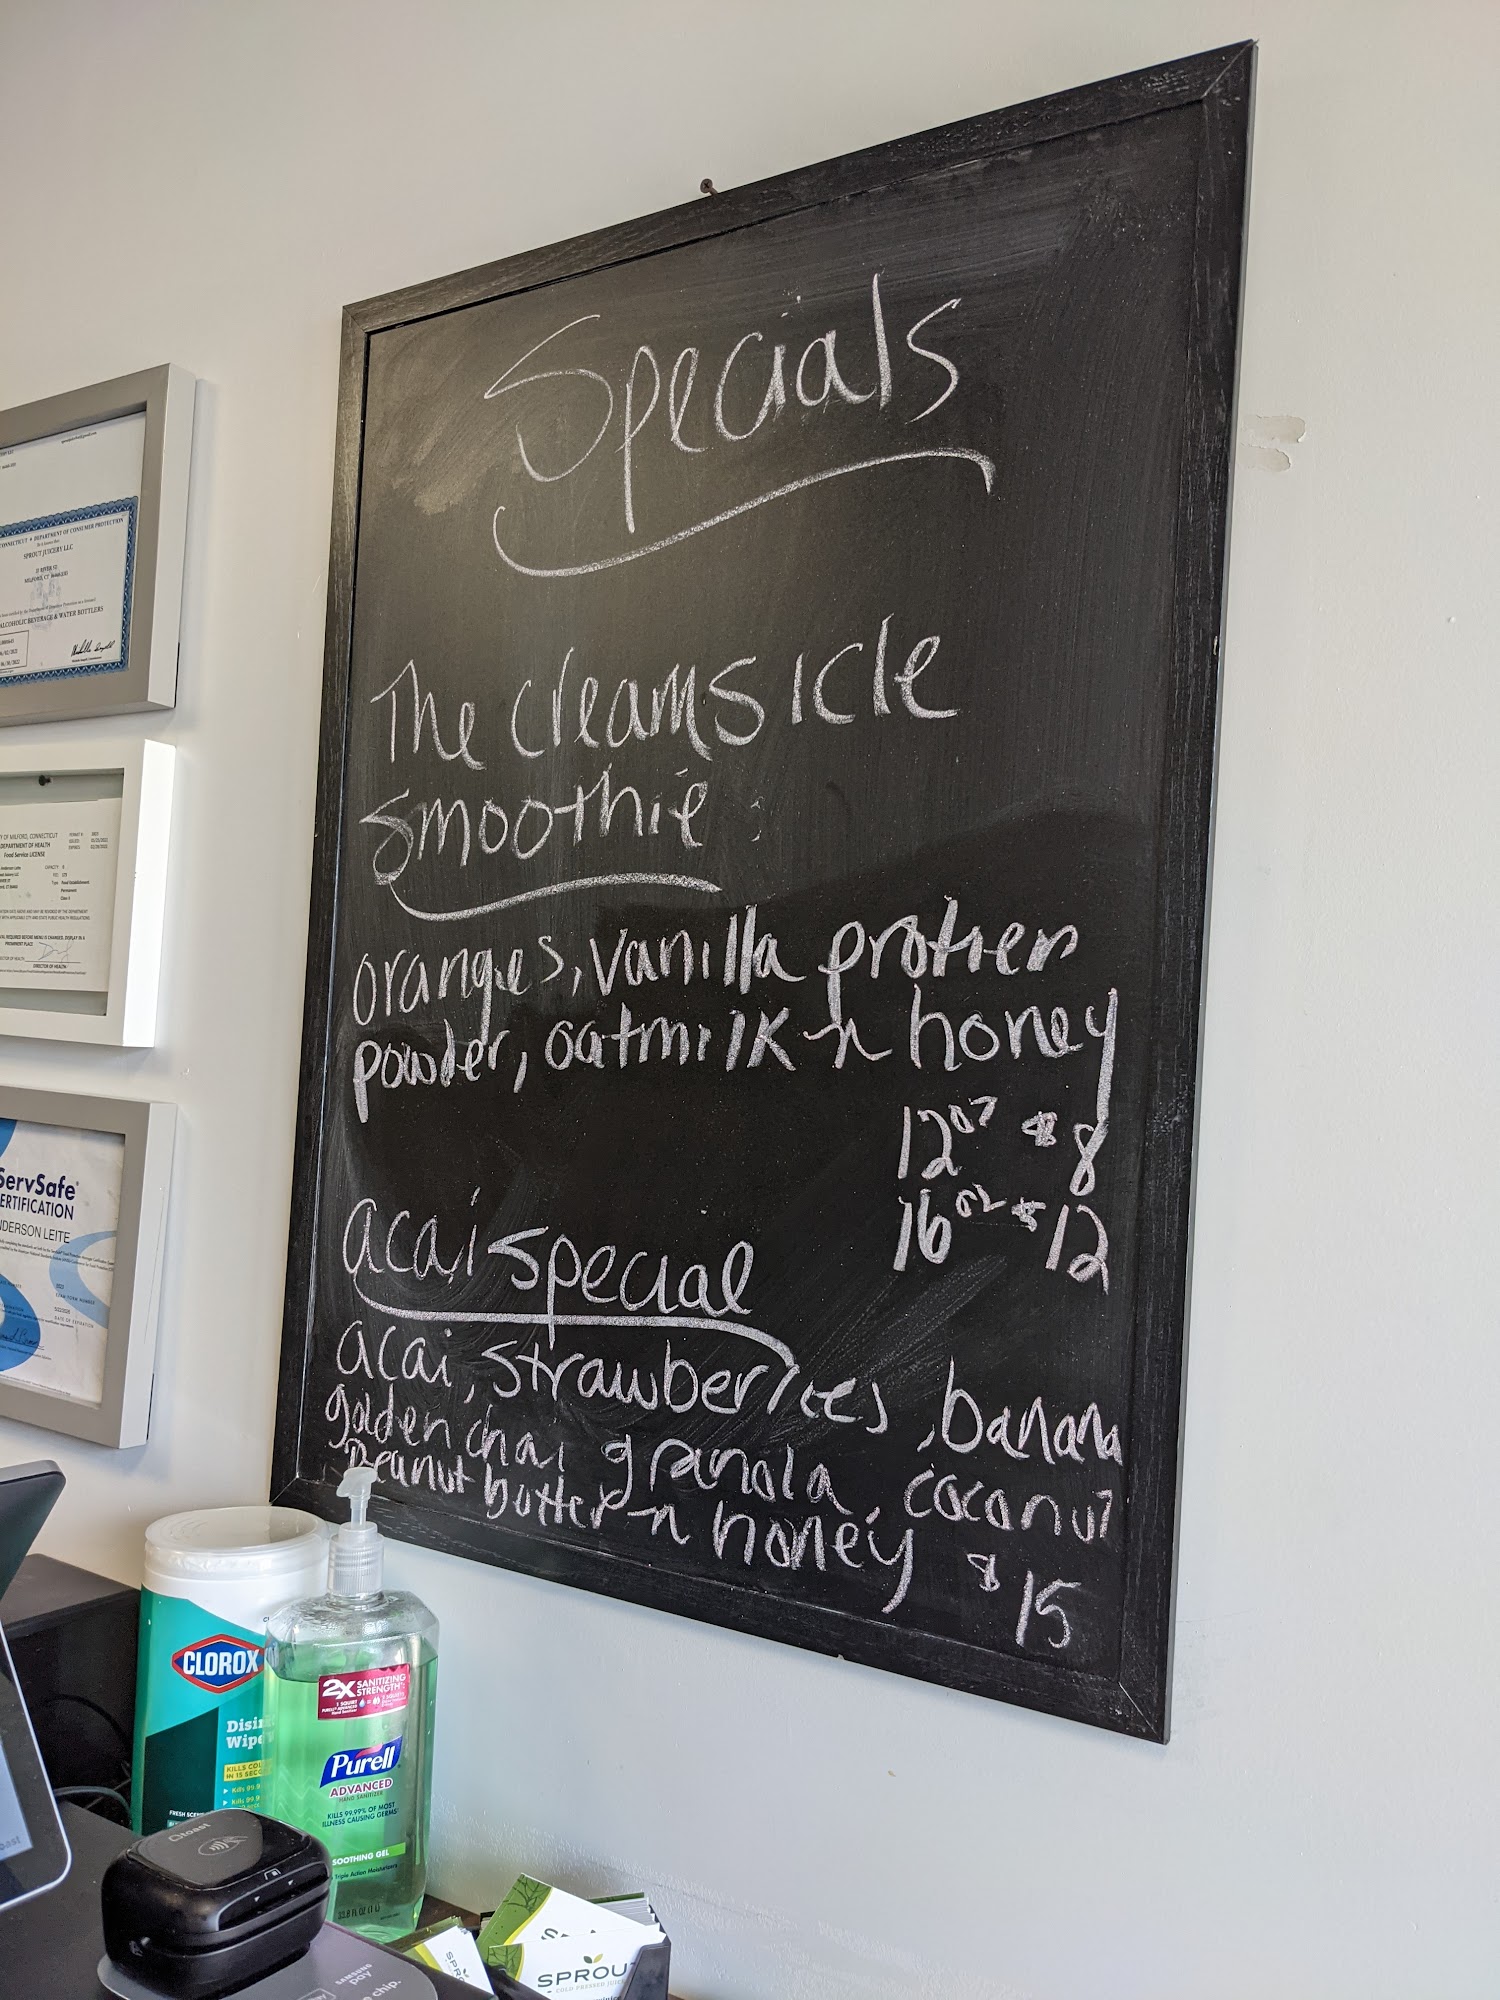 Specials
The Creamsicle
Smoothie:
oranges, vanilla protien
powder, oatmilk n honey
12oz $8
16oz $12
acai special
acai, strawberries, banana
golden chai granola, coconut
Peanut butter n honey
$15
CONNECTICUT DEPARTMENT OF CONSUMER PROTECTION
SPROUT JUICERY LLC
MILFORD, CT
ALCOHOLIC BEVERAGE & WATER BOTTLERS
OF MILFORD, CONNECTICUT
DEPARTMENT OF HEALTH
Food Service LICENSE
DIRECTOR OF HEALTH
ServSafe
CERTIFICATION
NDERSON LEITE
CLOROX
Disin
Wipe
KILLS COL
IN 15 SECO
Kills 99.9
FRESH SCEN
2X SANITIZING
STRENGTH
Purell
ADVANCED
HAND SANITIZER
KILLS 99.99% OF MOST
ILLNESS CAUSING GERMS
SOOTHING GEL
Triple Action Moisturizers
33.8 FL OZ (1 L)
toast
SAMSUNG
pay
chip.
SPROUT
COLD PRESSED JUICE